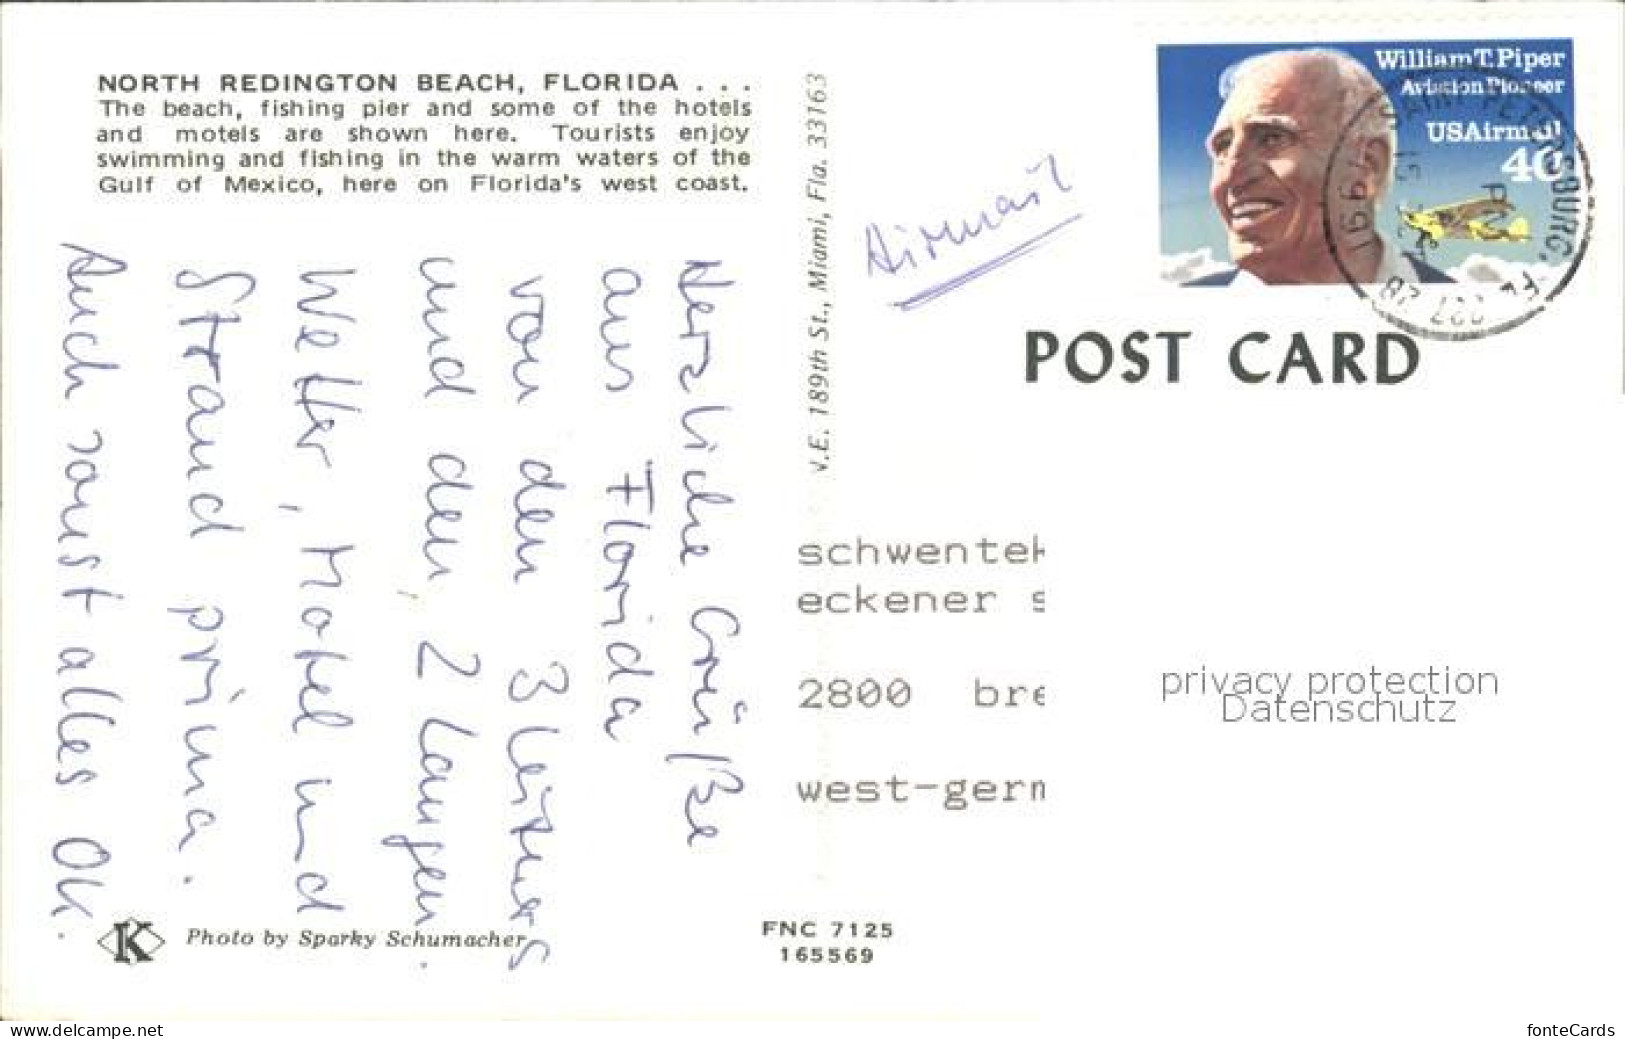 NORTH REDINGTON BEACH, FLORIDA . . .
The beach, fishing pier and some of the hotels
and motels are shown here. Tourists enjoy
swimming and fishing in the warm waters of the
Gulf of Mexico, here on Florida's west coast.
Herzliche Grüße
aus Florida
von den 3 Leitners
und den 2 Langen.
Wetter, Motel und
Strand prima.
Auch sonst alles OK.
Photo by Sparky Schumacher
K
V.E. 189th St., Miami, Fla. 33163
FNC 7125
165569
Airmail
William T. Piper
Aviation Pioneer
USAirmail
40
SAINT PETERSBURG, FL
PM
1991
POST CARD
schwentek
eckener s
2800 bre
west-germ
privacy protection
Datenschutz
www.delcampe.net
fonteCards